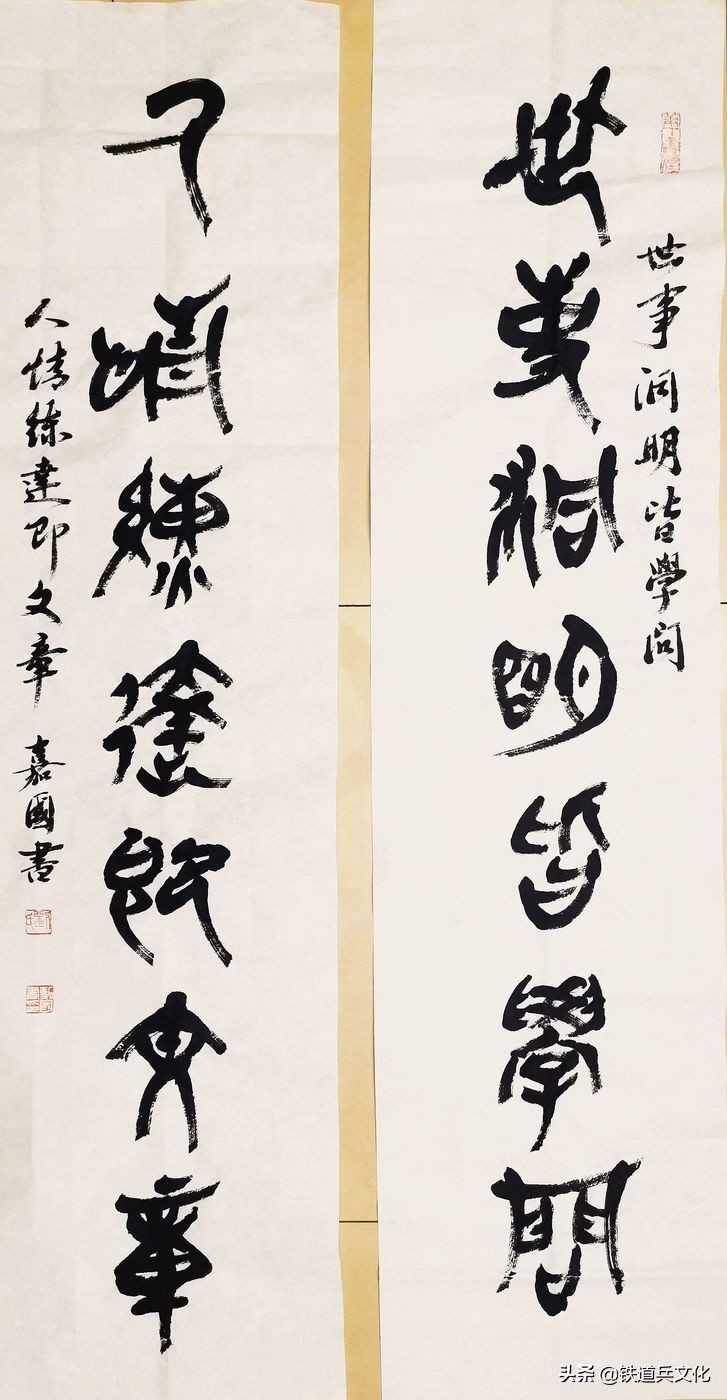 世事洞明皆學問
世事洞明皆學问
人情練達即文章
人情练達即文章 嘉國書
头条 @铁道兵文化